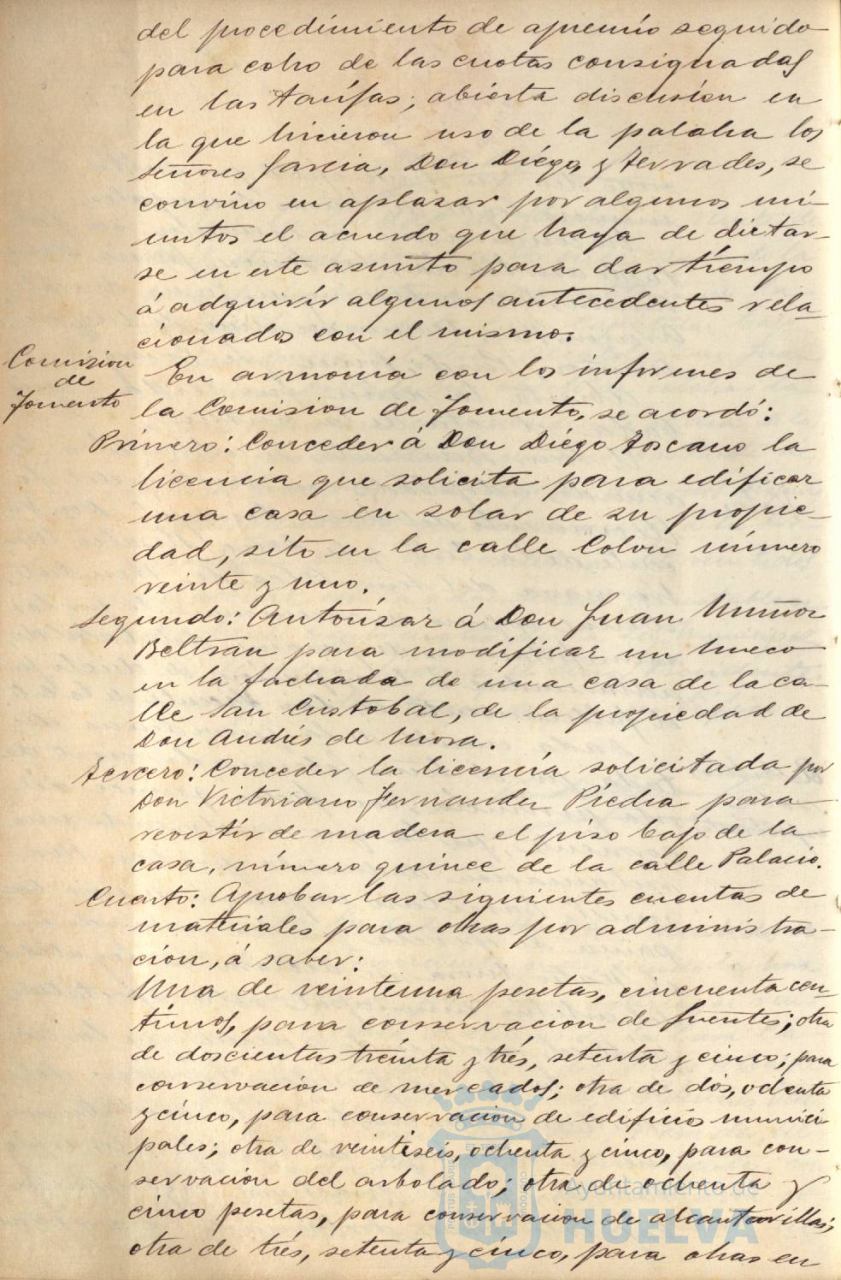 del procedimiento de apremio seguido
para cobro de las cuotas consignadas
en las tarifas; abierta discusión en
la que hicieron uso de la palabra los
Señores García, Don Diego y Terrades, se
convino en aplazar por algunos mi-
nutos el acuerdo que haya de dictar-
se en este asunto para dar tiempo
á adquirir algunos antecedentes rela-
cionados con el mismo.
Comision
de
Fomento
En armonía con los informes de
la Comision de Fomento, se acordó:
Primero: Conceder á Don Diégo Toscano la
licencia que solicita para edificar
una casa en solar de su propie-
dad, sito en la calle Colon número
veinte y uno.
Segundo: Autorizar á Don Juan Muñoz
Beltran para modificar un hueco
en la fachada de una casa de la ca-
lle San Cristobal, de la propiedad de
Don Andrés de Mora.
Tercero: Conceder la licencia solicitada por
Don Victoriano Fernandez Piedra para
revestir de madera el piso bajo de la
casa, número quince de la calle Palacio.
Cuarto: Aprobar las siguientes cuentas de
materiales para obras por administra-
ción, á saber:
Una de veintiuna pesetas, cincuenta cen-
timos, para conservacion de fuentes; otra
de doscientas treinta y trés, setenta y cinco; para
conservación de mercados; otra de dós, ochenta
y cinco, para conservacion de edificios munici
pales; otra de veintiseis, ochenta y cinco, para con-
servacion del arbolado; otra de ochenta y
cinco pesetas, para conservacion de alcantarillas;
otra de trés, setenta y cinco, para obras en
Ayuntamiento de
HUELVA